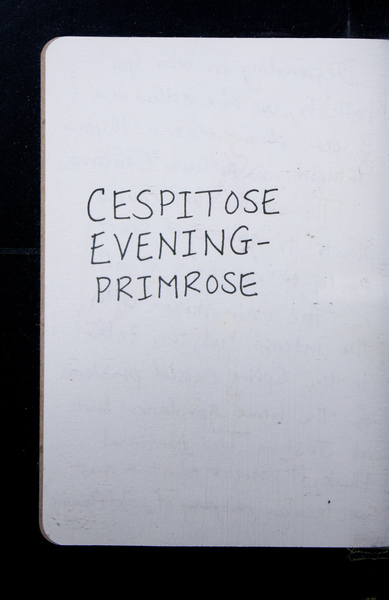 CESPITOSE
EVENING-
PRIMROSE